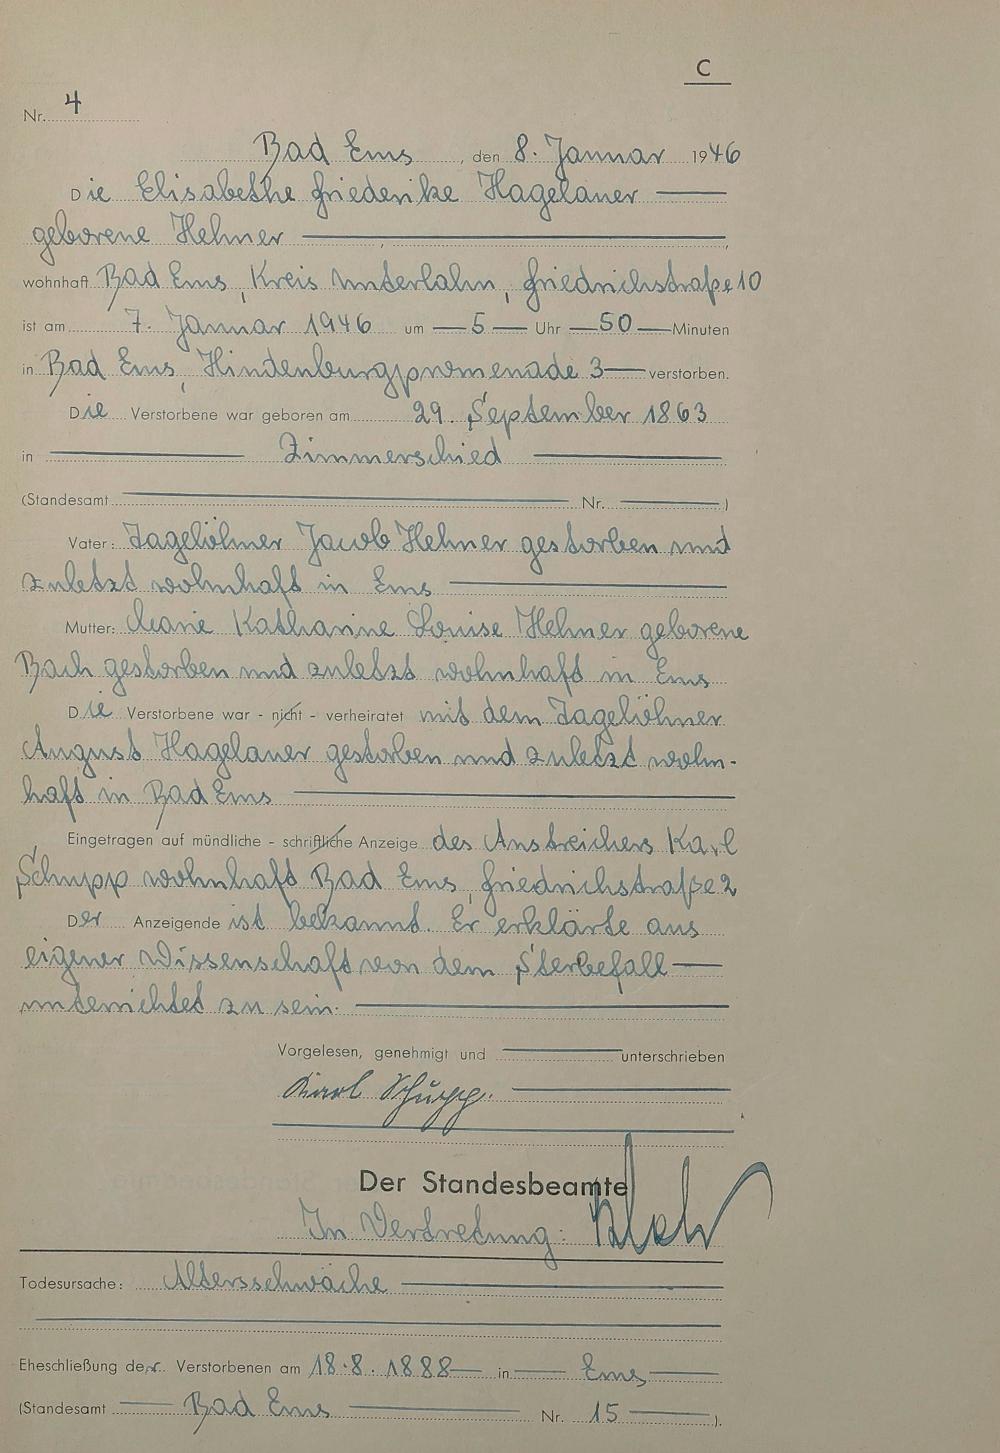 C
Nr. 4
Bad Ems, den 8. Januar 1946
Die Elisabethe Friederike Hagelauer
geborene Hehner
wohnhaft Bad Ems, Kreis Unterlahn, Friedrichstraße 10
ist am 7. Januar 1946 um 5 Uhr 50 Minuten
in Bad Ems, Hindenburgpromenade 3 verstorben.
Die Verstorbene war geboren am 29. September 1863
in Zimmerschied
(Standesamt Nr. )
Vater: Tagelöhner Jacob Hehner gestorben und
zuletzt wohnhaft in Ems
Mutter: Marie Katharine Louise Hehner geborene
Bach gestorben und zuletzt wohnhaft in Ems
Die Verstorbene war - nicht - verheiratet mit dem Tagelöhner
August Hagelauer gestorben und zuletzt wohn-
haft in Bad Ems
Eingetragen auf mündliche - schriftliche Anzeige des Anstreichers Karl
Schupp wohnhaft Bad Ems, Friedrichstraße 2
Der Anzeigende ist bekannt. Er erklärte aus
eigener Wissenschaft von dem Sterbefall
unterrichtet zu sein.
Vorgelesen, genehmigt und unterschrieben
Karl Schupp.
Der Standesbeamte
In Vertretung:
Todesursache: Altersschwäche
Eheschließung der Verstorbenen am 18.8.1888 in Ems
(Standesamt Bad Ems Nr. 15 ).